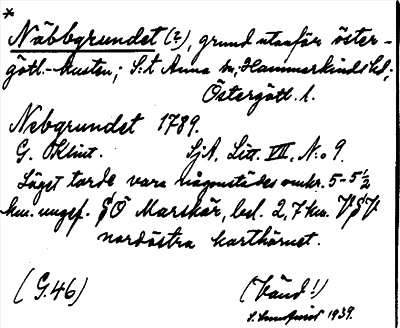 *
Näbbgrundet (?), grund utanför öster-
götl.-kusten; S:t Anna sn, Hammarkinds hd;
Östergötl. l.
Nebgrundet 1789.
G. Klint. SjA, Litt. VII, N:o 9.
Läget torde vara någonstädes omkr. 5-5½
km. ungef. SO Marskär, bel. 2,7 km. VSV
nordöstra karthörnet.
(G.46) (Vänd!)
1939.